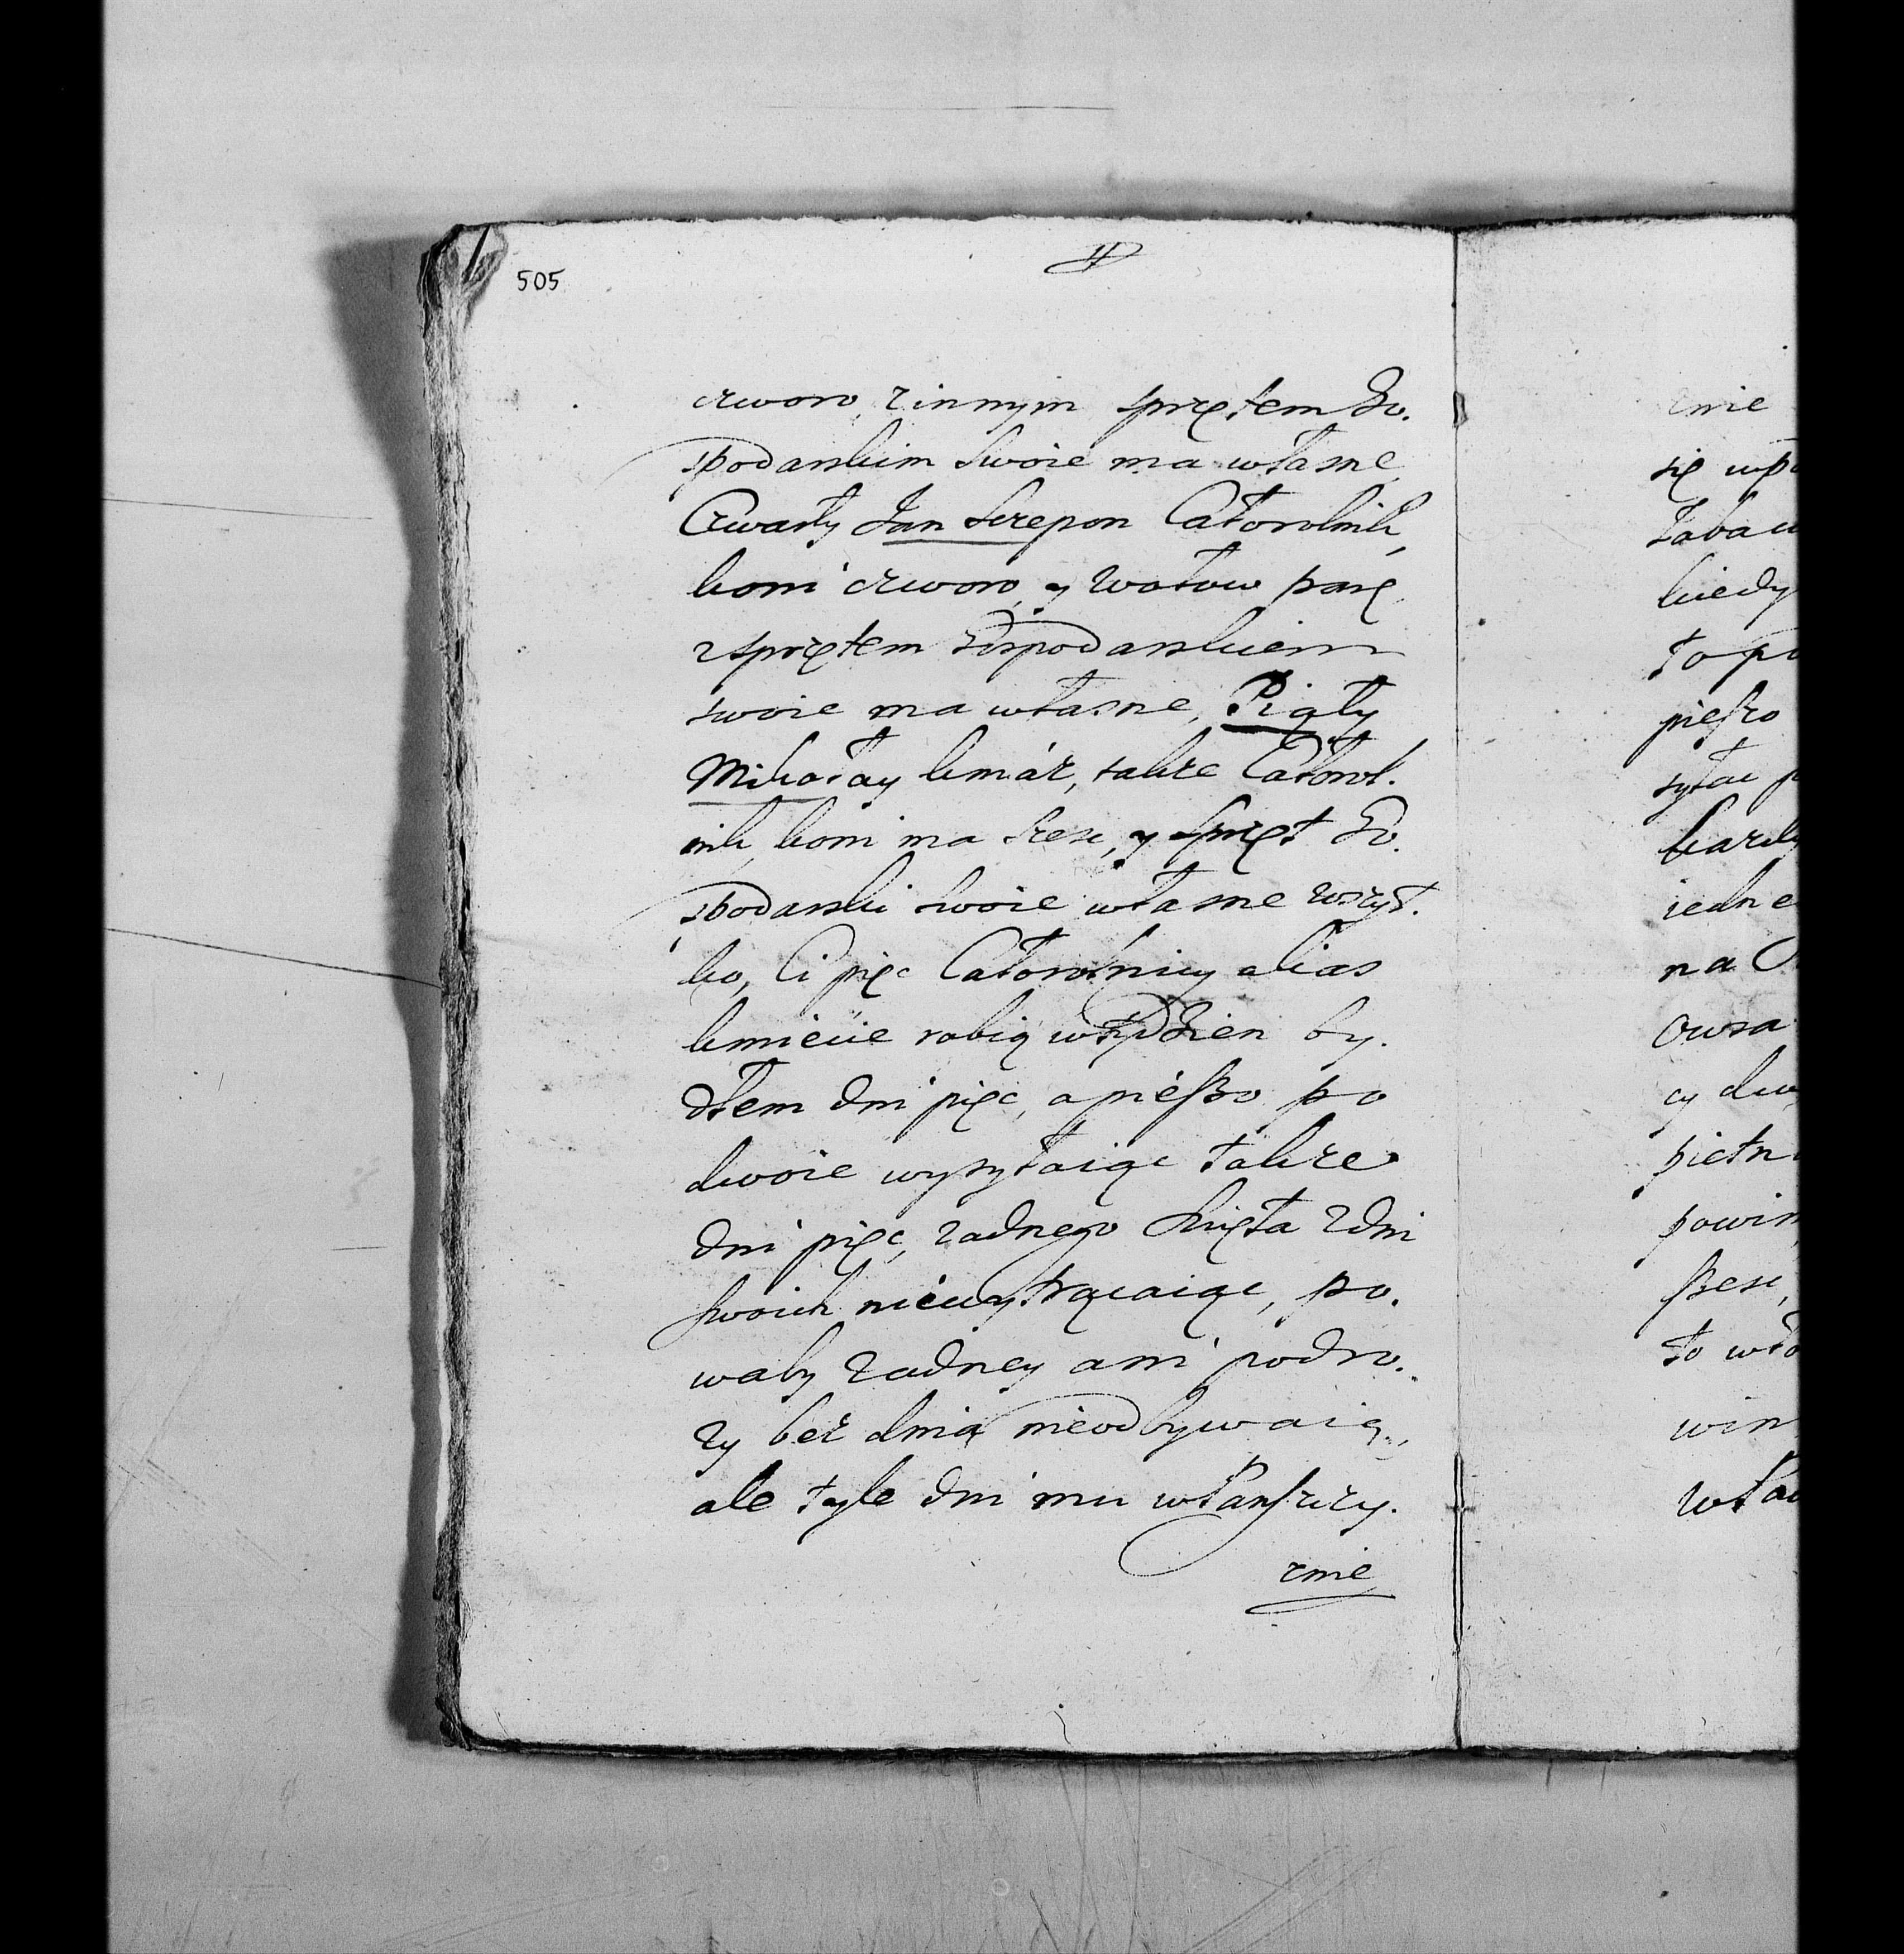 505
czworo, z innym sprzętem Go.
spodarskim swoie ma własne,
Czwarty Jan Szczepon Całorolnik,
koni czworo, y wołow parę,
z sprzętem Gospodarskiem
swoie ma własne, Piąty
Mikołay kmár, takze Całorol.
nik, koni ma szesc, y sprzęt Go.
spodarski swoie własne wszyst.
ko, Ci pięc Całorolnicy alias
kmiecie robią w tydzien by.
dłem dni pięc, a pieszo po
dwoie wysyłaiąc takze
dni pięc, zadnego swięta z dni
swoich niewytrącaiąc, po.
waby zadney ani podro.
zy bez dnia nieodbywaią,
ale tyle dni mu w Panszczy.
znie
znie
się wpo
kiedy
to po
pieszo
iedne
na
owsa
powin
szesc,
to wło
win